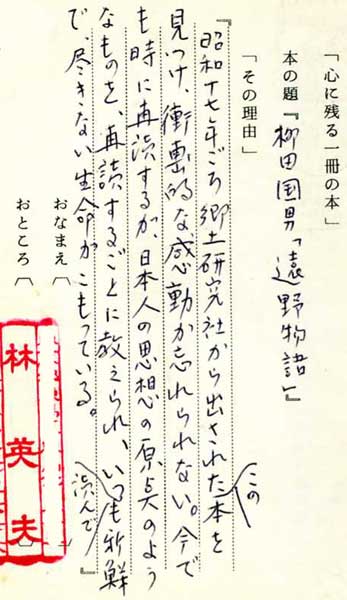 「心に残る一冊の本」
本の題『柳田国男「遠野物語」』
「その理由」
『昭和十七年ごろ郷土研究社から出されたこの本を
見つけ、衝撃的な感動が忘れられない。今で
も時に再読するが、日本人の思想の原点のよう
なものを、再読するごとに教えられ、いつ読んでも新鮮
で、尽きない生命がこもっている。』
おなまえ〔
おところ〔
林英夫